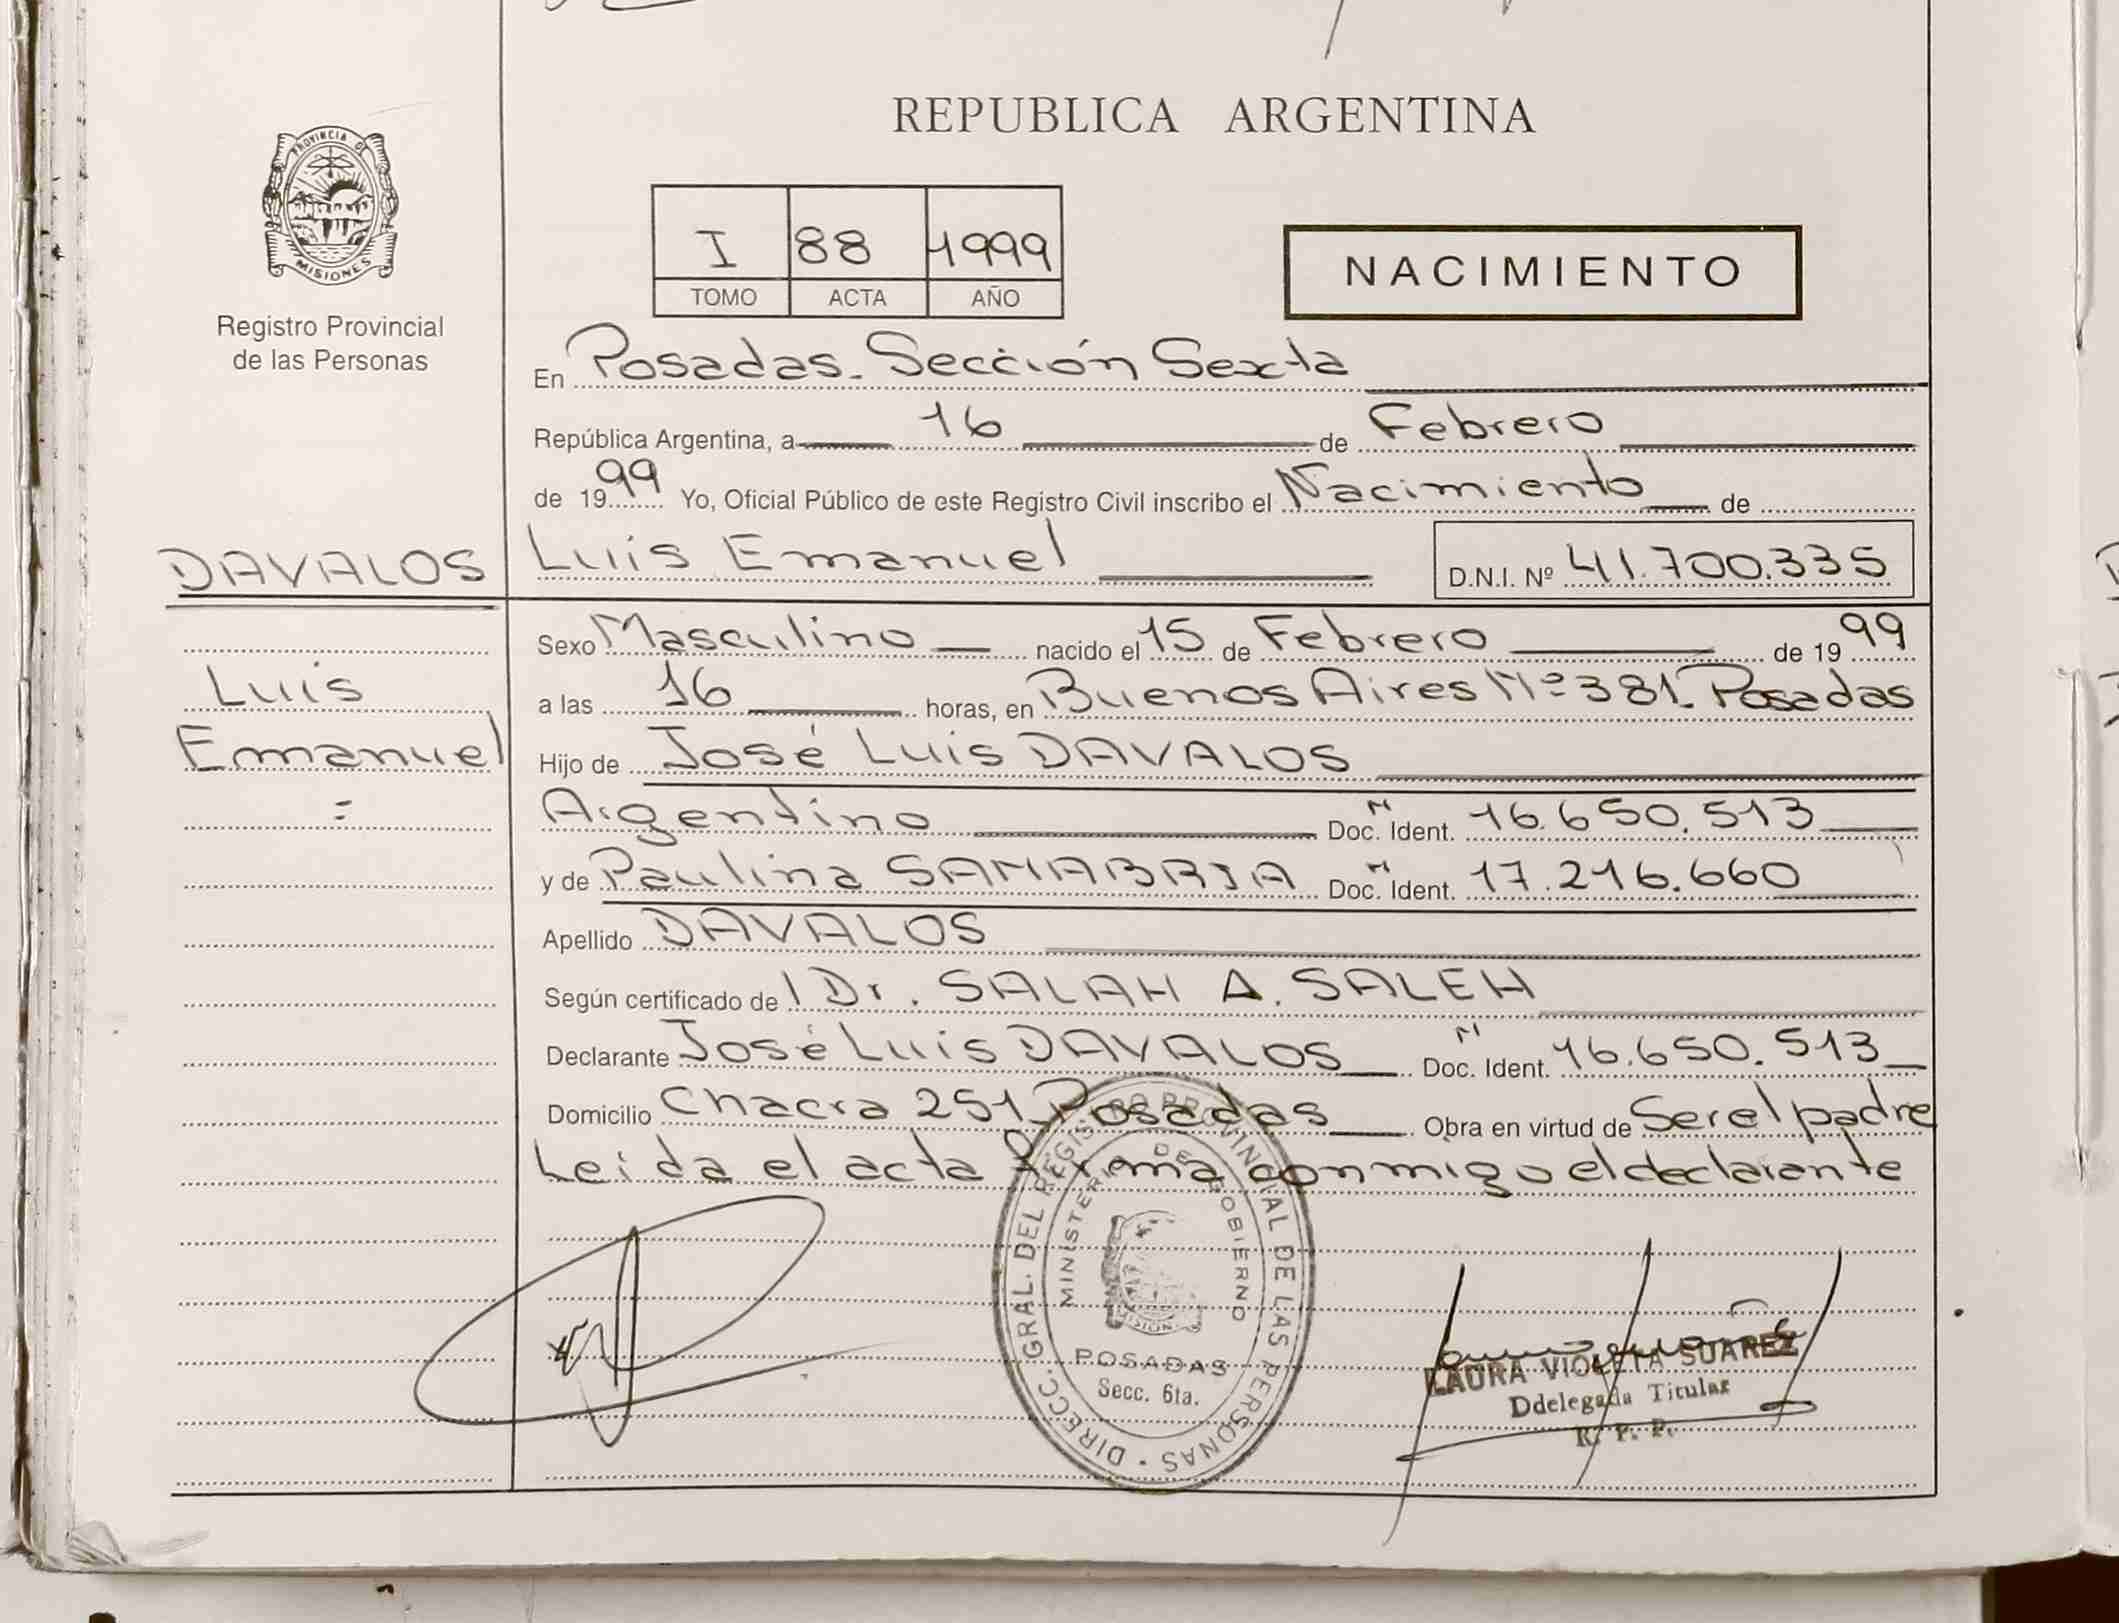 REPUBLICA ARGENTINA
PROVINCIA DE
MISIONES
Registro Provincial
de las Personas
I 88 1999
TOMO ACTA AÑO
NACIMIENTO
En Posadas. Sección Sexta
República Argentina, a 16 de Febrero
de 1999 Yo, Oficial Público de este Registro Civil inscribo el Nacimiento de
DAVALOS Luis Emanuel D.N.I. Nº 41.700.335
Sexo Masculino nacido el 15 de Febrero de 1999
Luis
a las 16 horas, en Buenos Aires Nº 381. Posadas
Emanuel
Hijo de José Luis DAVALOS
=
Argentino Doc. Ident. 16.650.513
y de Paulina SANABRIA Doc. Ident. 17.216.660
Apellido DAVALOS
Según certificado de Dr. SALAH A. SALEH
Declarante José Luis DAVALOS Doc. Ident. 16.650.513
Domicilio Chacra 251 Posadas Obra en virtud de Ser el padre
Leida el acta firma conmigo el declarante
DIRECC. GRAL. DEL REGISTRO PROVINCIAL DE LAS PERSONAS
MINISTERIO DE GOBIERNO
POSADAS
Secc. 6ta.
LAURA VIOLETA SUAREZ
Ddelegada Titular
R. P. P.